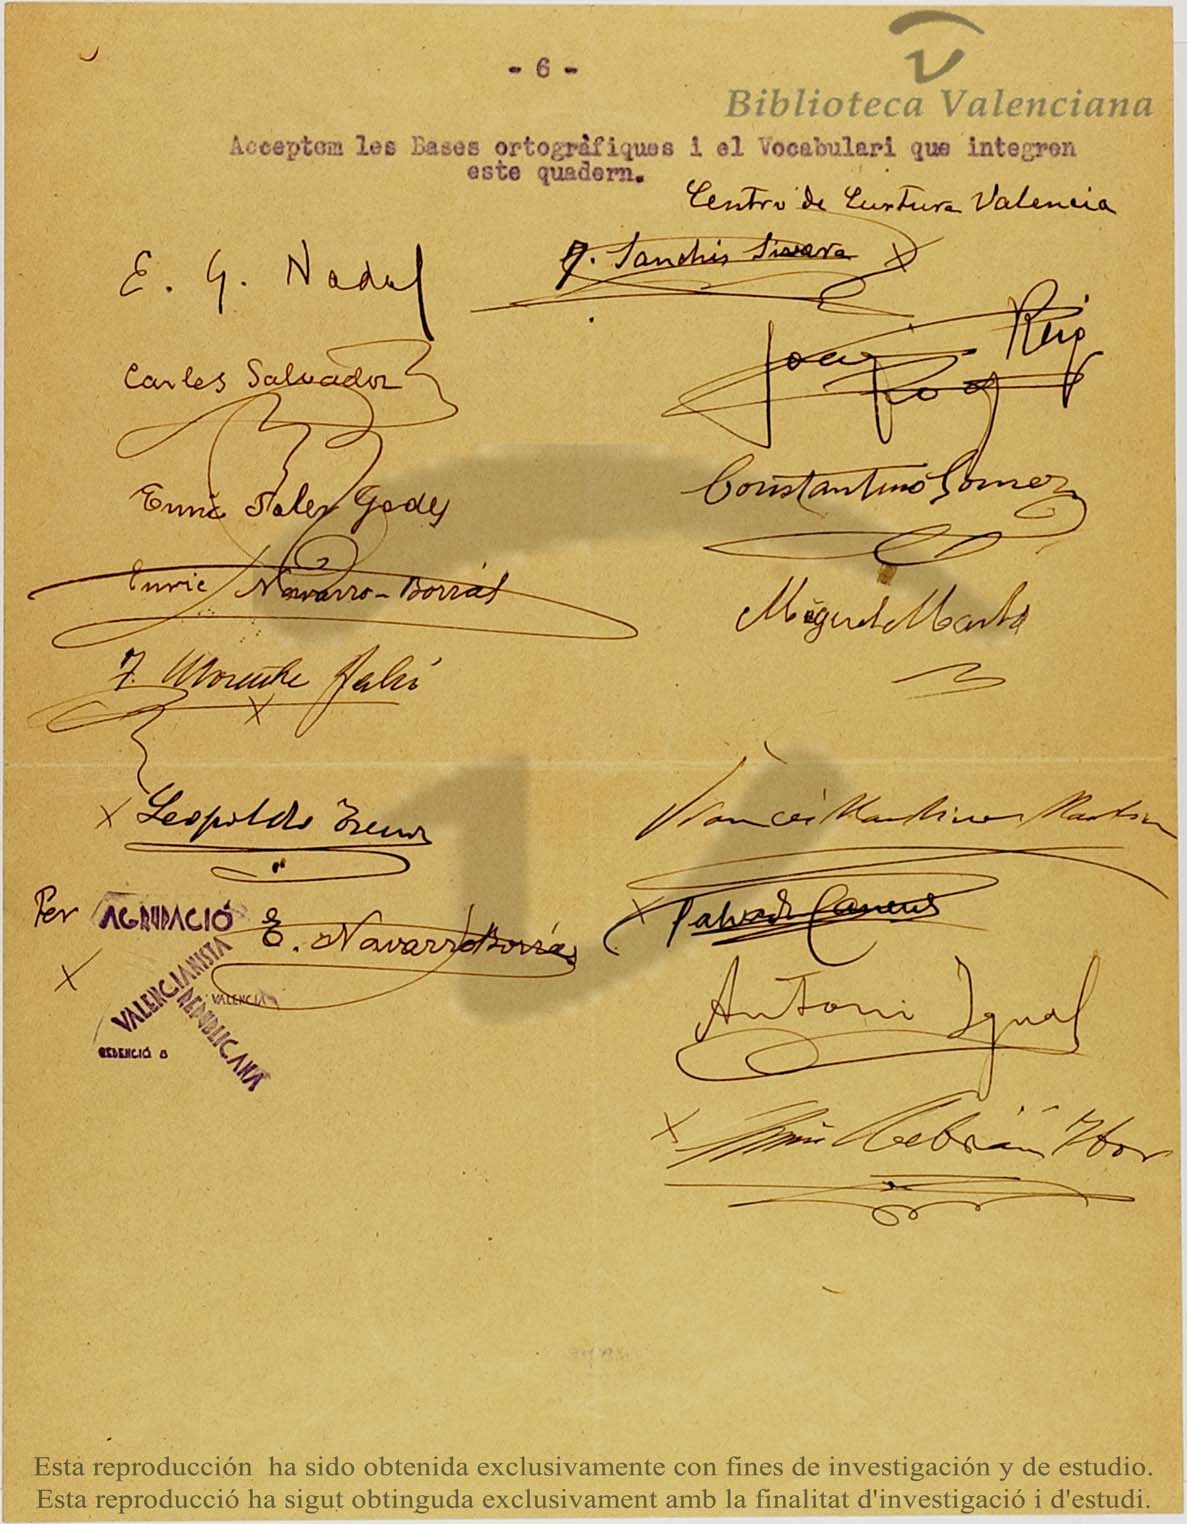 - 6 -
Biblioteca Valenciana
Acceptem les Bases ortogràfiques i el Vocabulari que integren
este quadern.
Centro de Cultura Valencia
J. Sanchis Sivera X
E. G. Nadal
Reig
Carles Salvador
Enric Soler Godes
Constantino Gomez
Enric Navarro-Borrás
Miguel
F. Morente
X
X Leopoldo Trenor
Francés Martinez Martinez
Per AGRUPACIÓ E. Navarro Borrás
X
VALENCIANISTA
REPUBLICANA
VALENCIA
REDENCIÓ 8
X Salvador
Antoni Igual
X Cebrián Ibor
Esta reproducción ha sido obtenida exclusivamente con fines de investigación y de estudio.
Esta reproducció ha sigut obtinguda exclusivament amb la finalitat d'investigació i d'estudi.